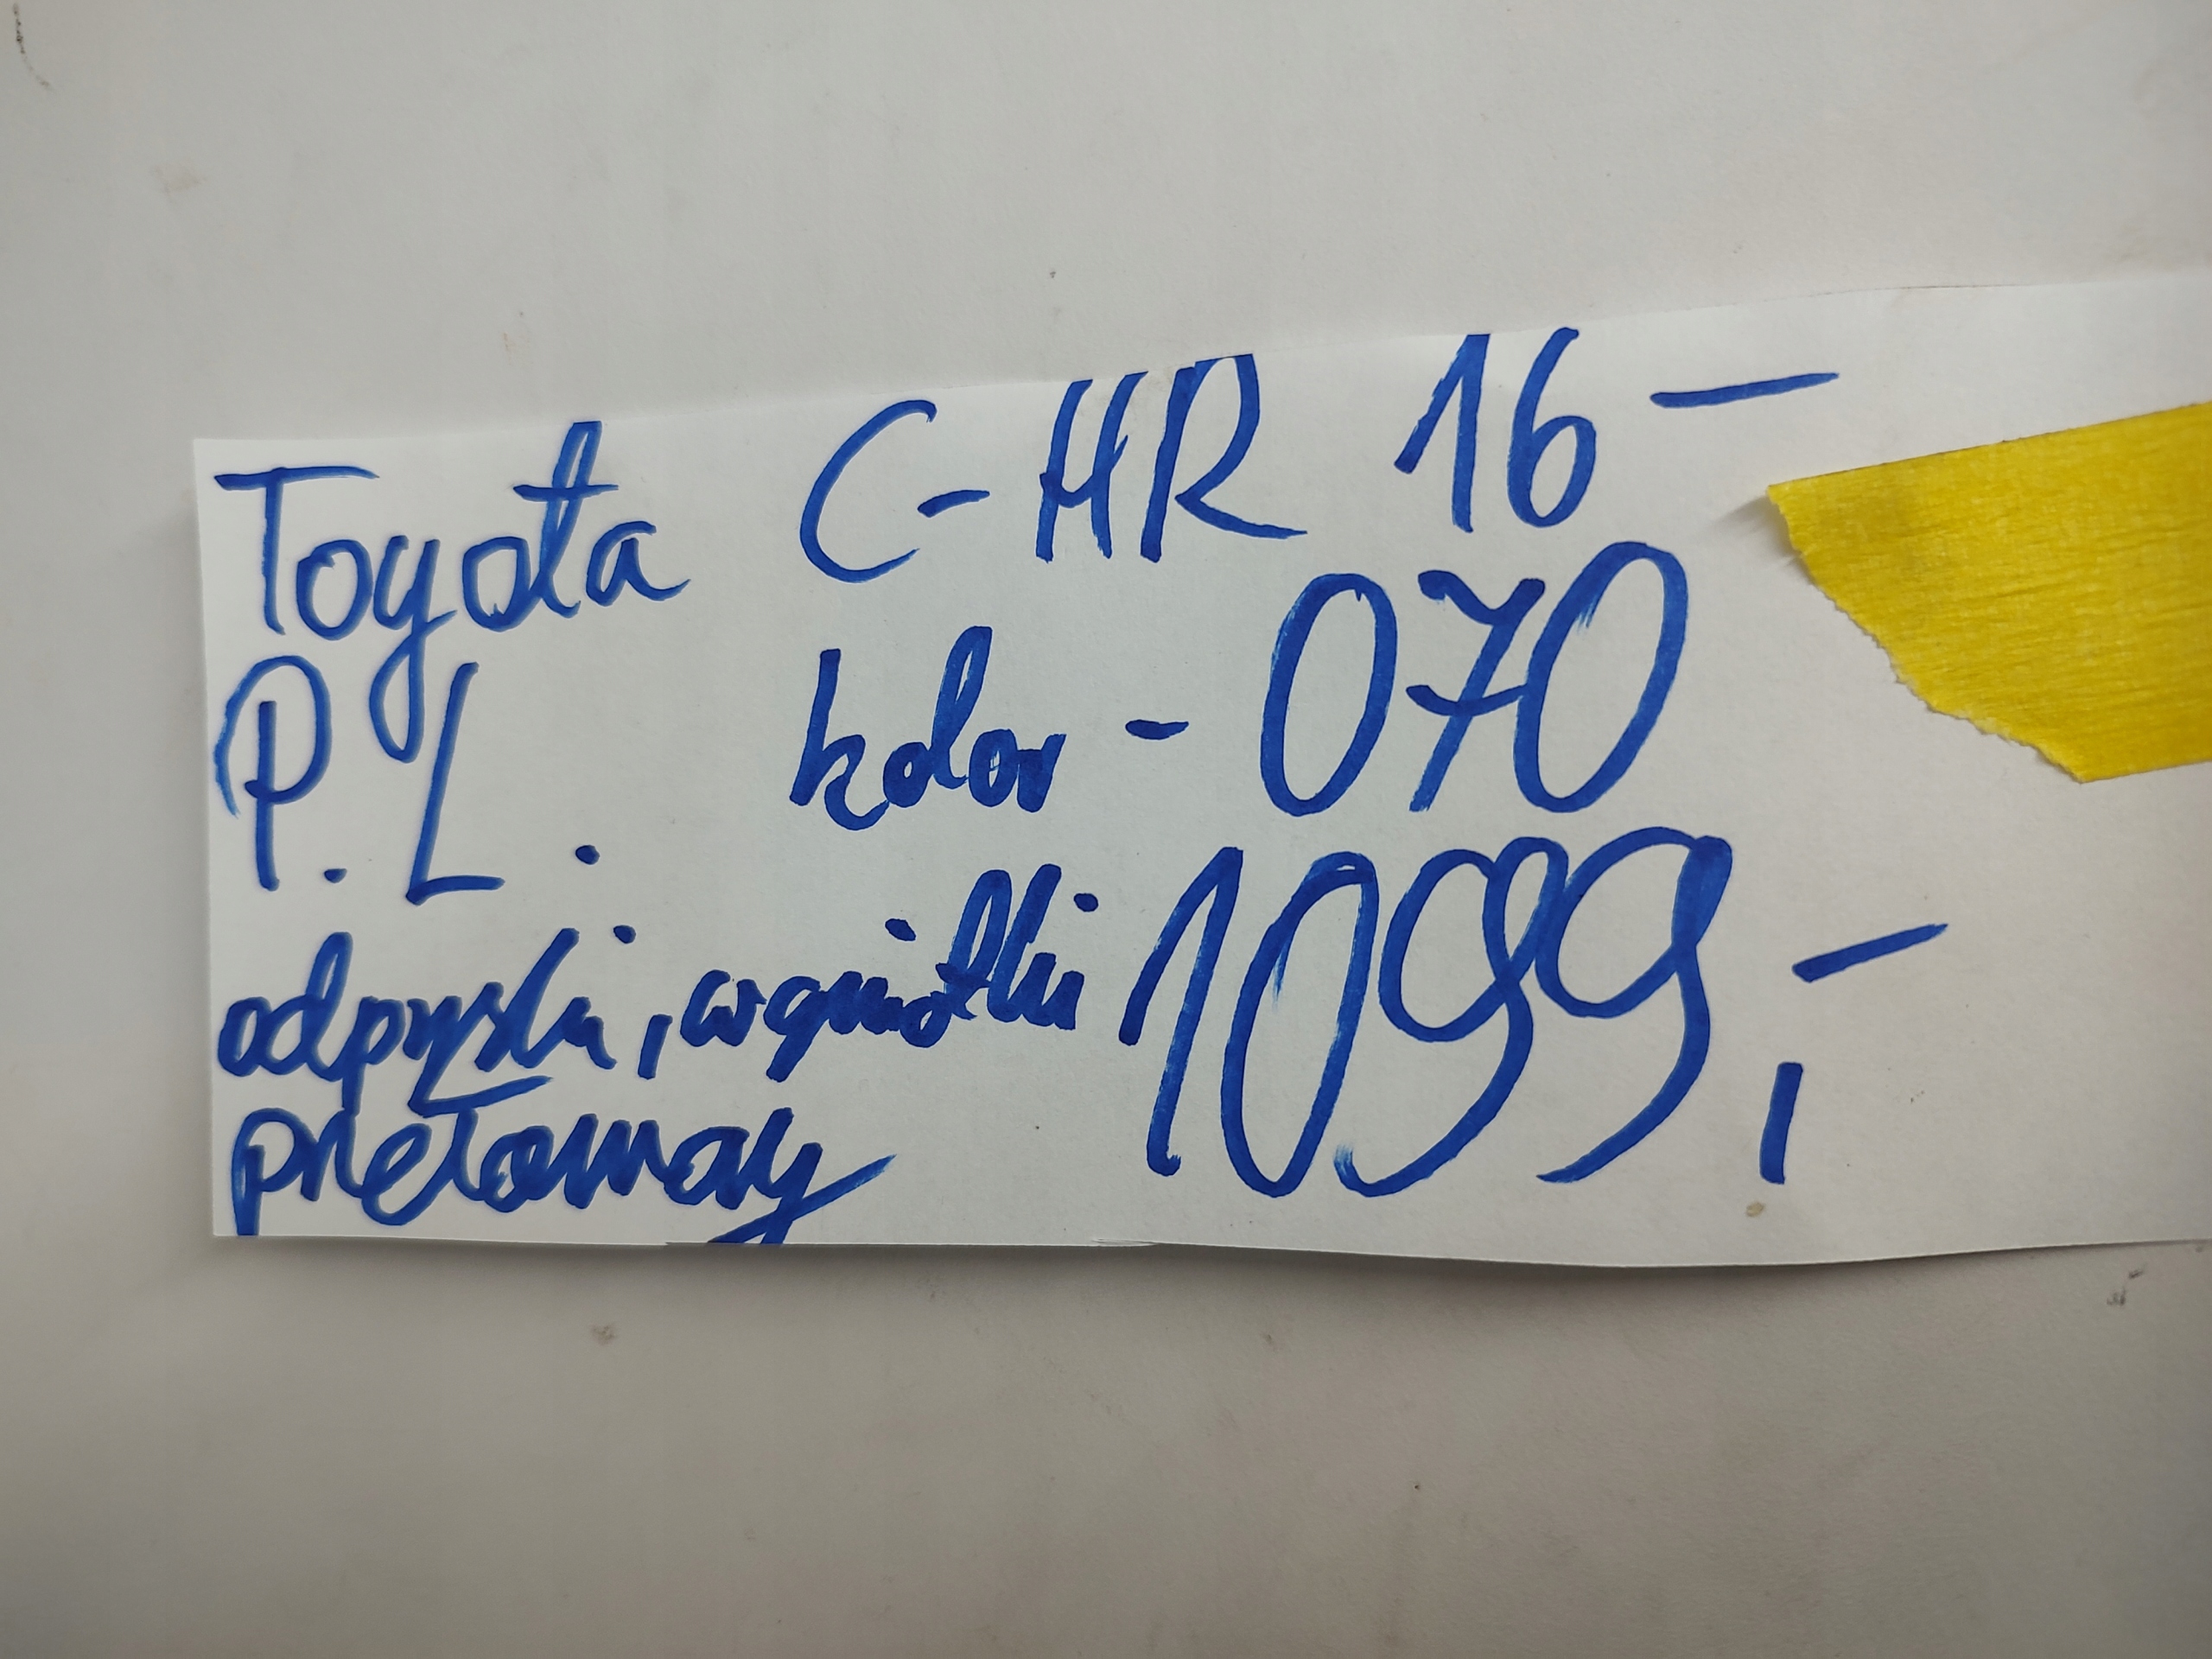 Toyota C-HR 16 -
P. L. kolor - 070
odpryski, wgniotki 1099,-
przełamany